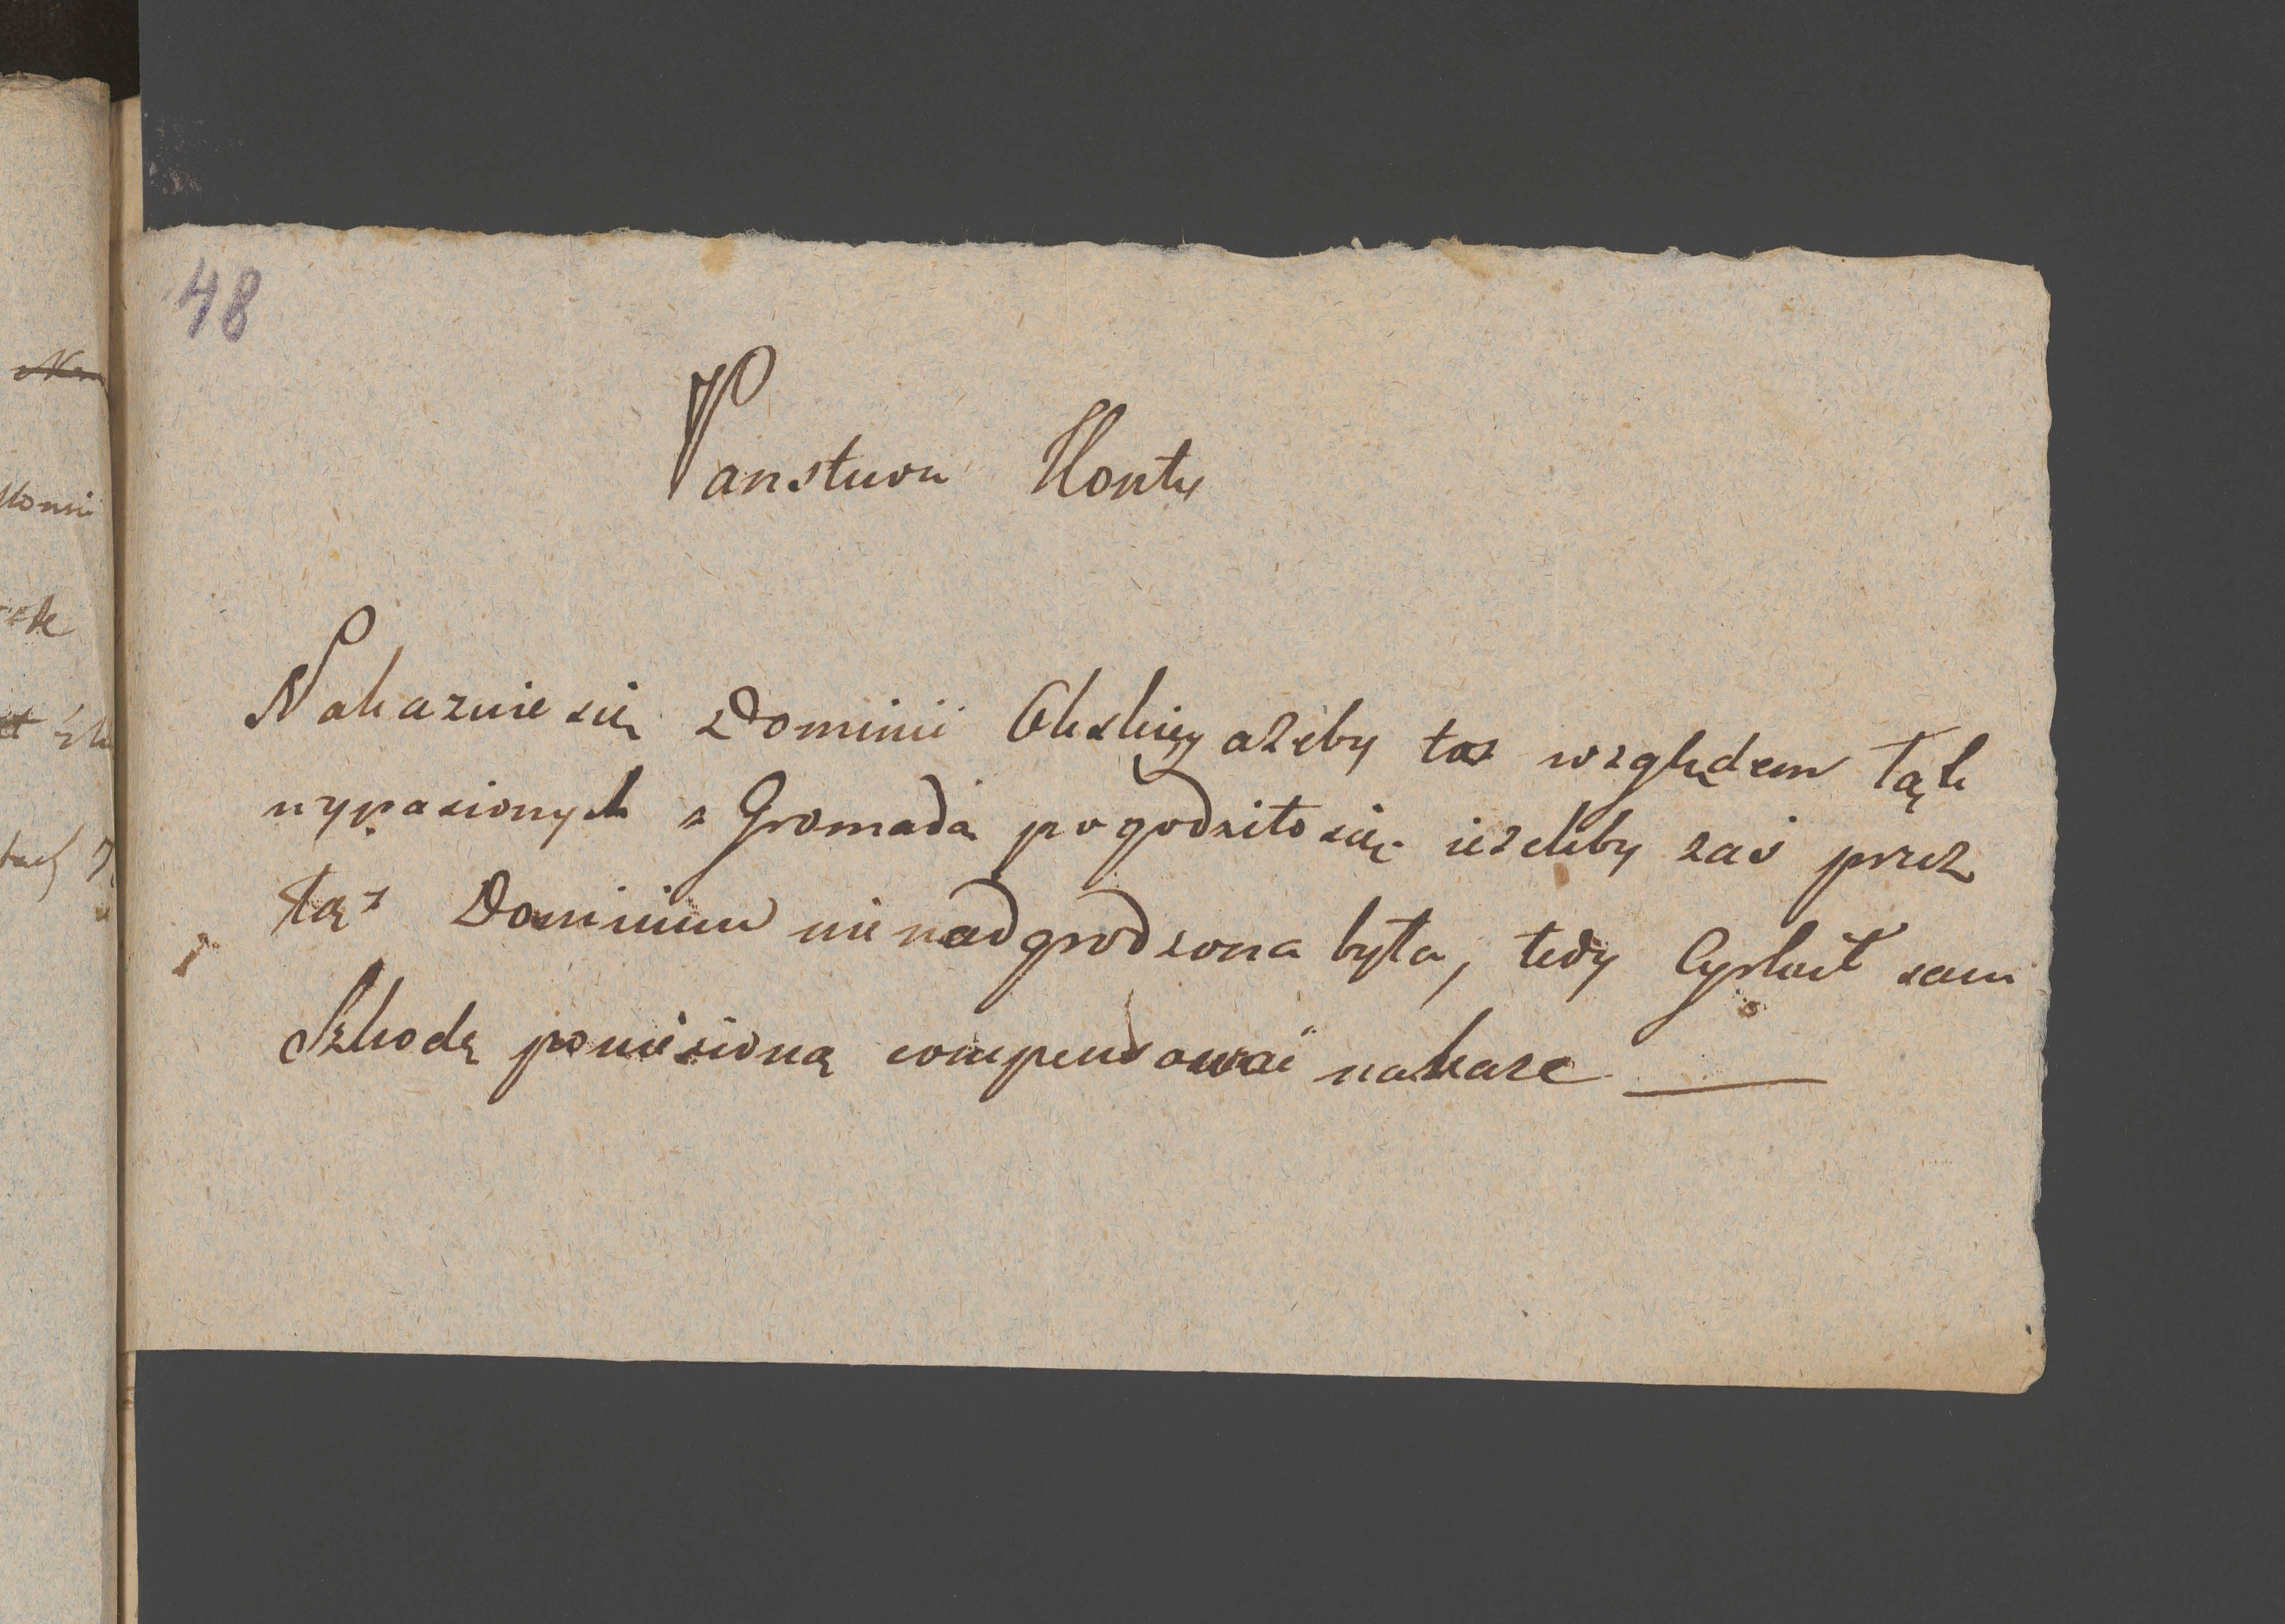 48
Panstwu Konty
Nakazuie się Dominii Obskiey ażeby toż względem Łąk
wypasionych z Gromadą pogodziło się ieżeliby zaś przez
tąż Dominium nie nadgrodzona była, tedy Cyrkuł sam
Szkodę poniesioną compensować nakaże